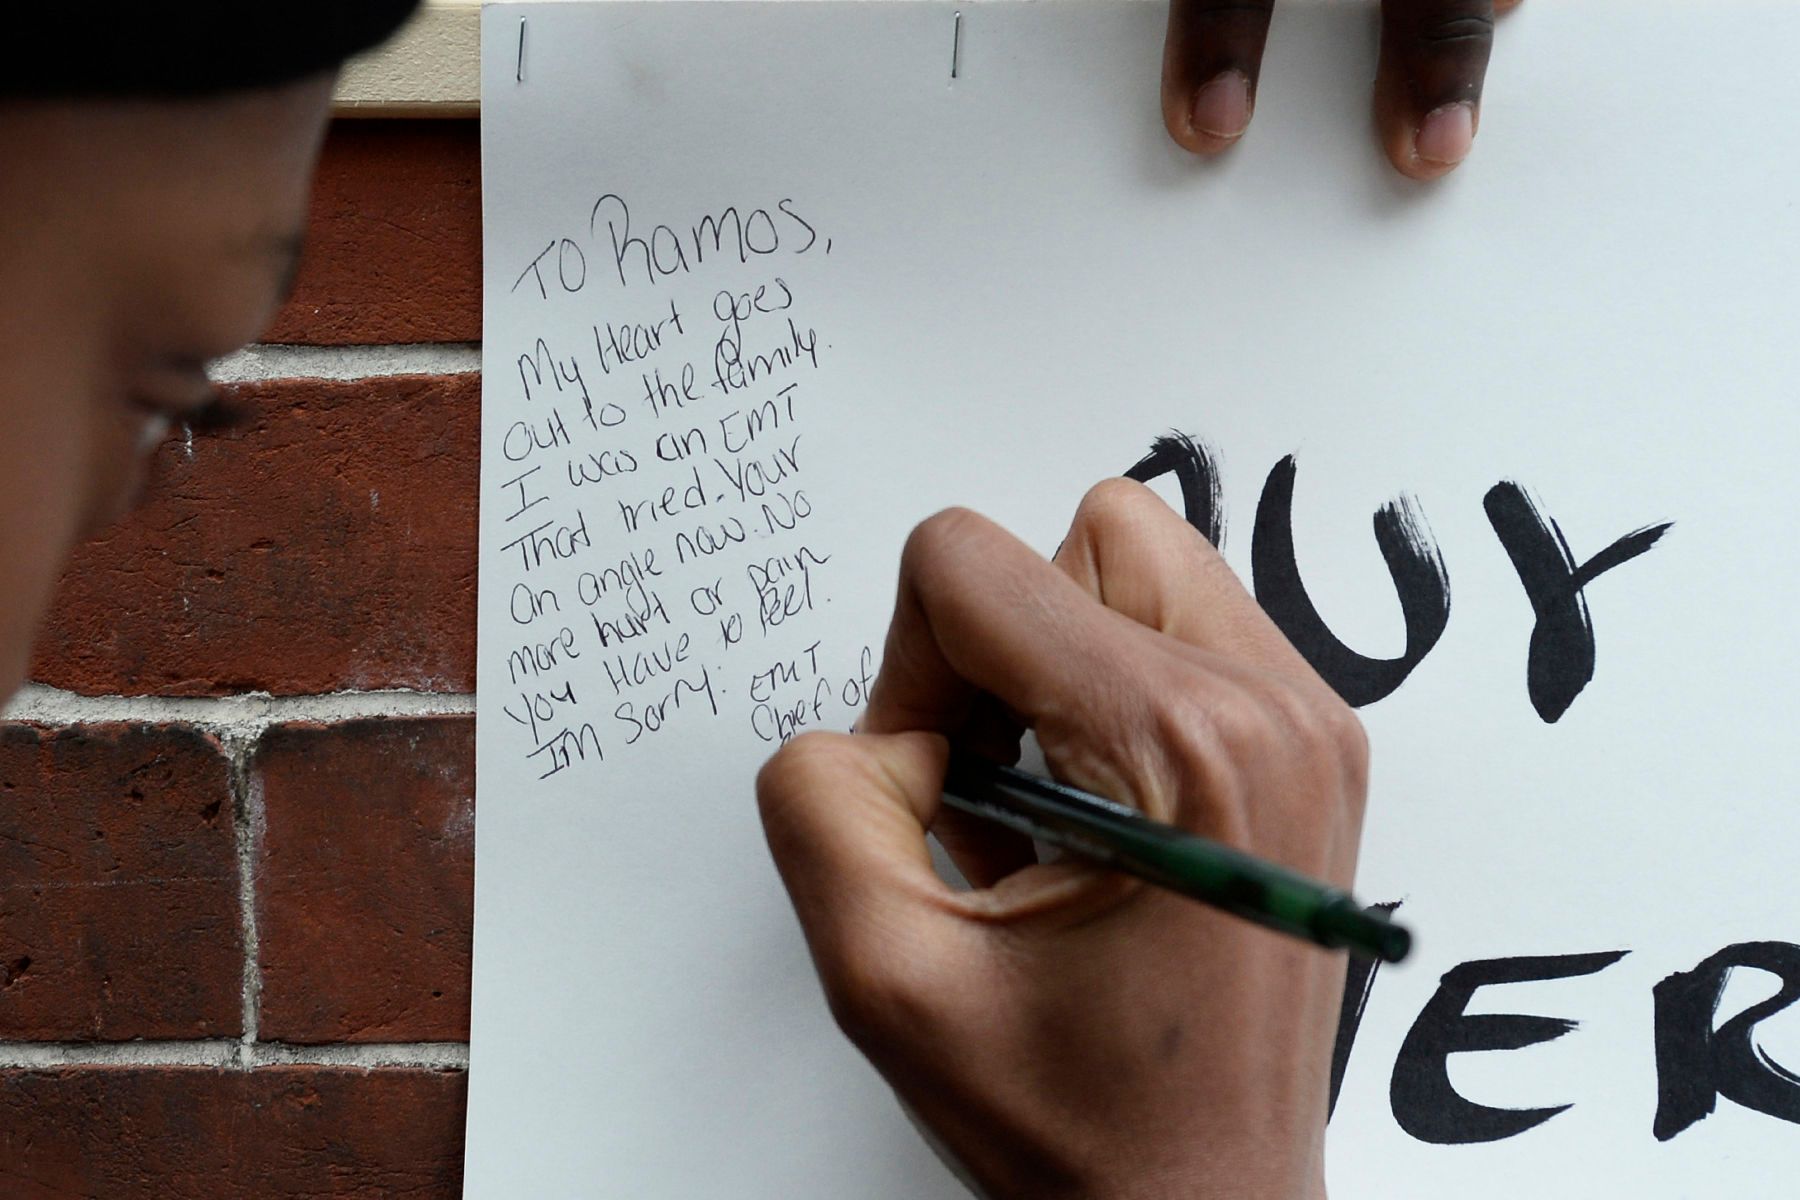 To Ramos,
My Heart goes
out to the family.
I was an EMT
That tried. Your
an angle now. No
more hurt or pain
you Have to feel.
I'm Sorry. EMT
Chief of
UY
ER